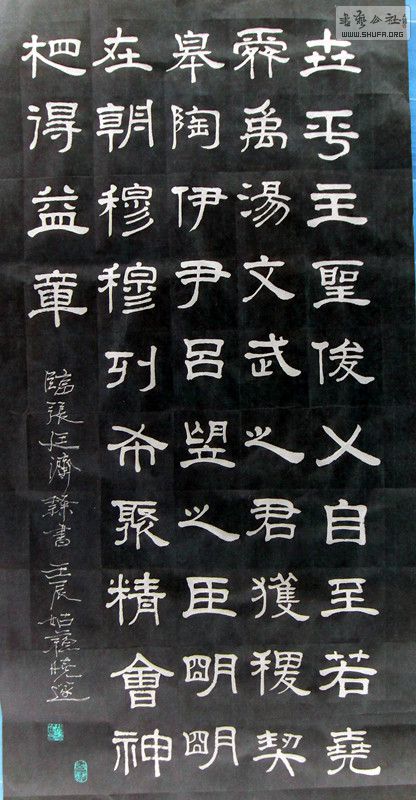 世平主聖俊乂自至若堯
舜禹湯文武之君獲稷契
皋陶伊尹呂望之臣明明
在朝穆穆列布聚精會神
相得益章
臨張廷濟隸書 壬辰姑蘇曉
書藝公社
WWW.SHUFA.ORG